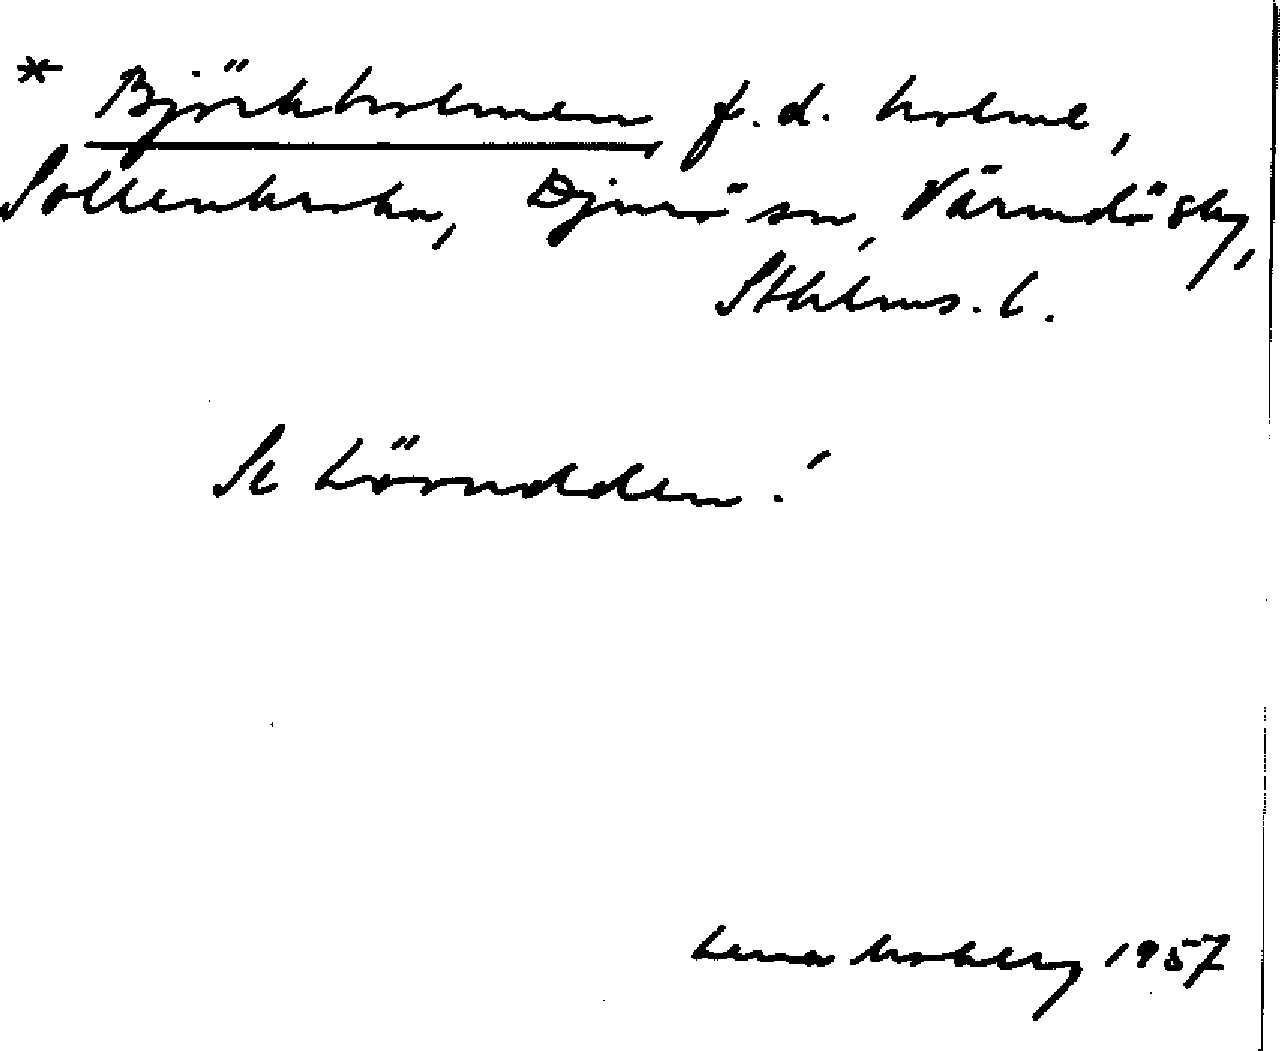 * Björkholmen f.d. holme,
Sollenkroka, Djurö sn, Värmdö skg,
Sthlms. l.
Se Lövudden!
Lena Moberg 1957